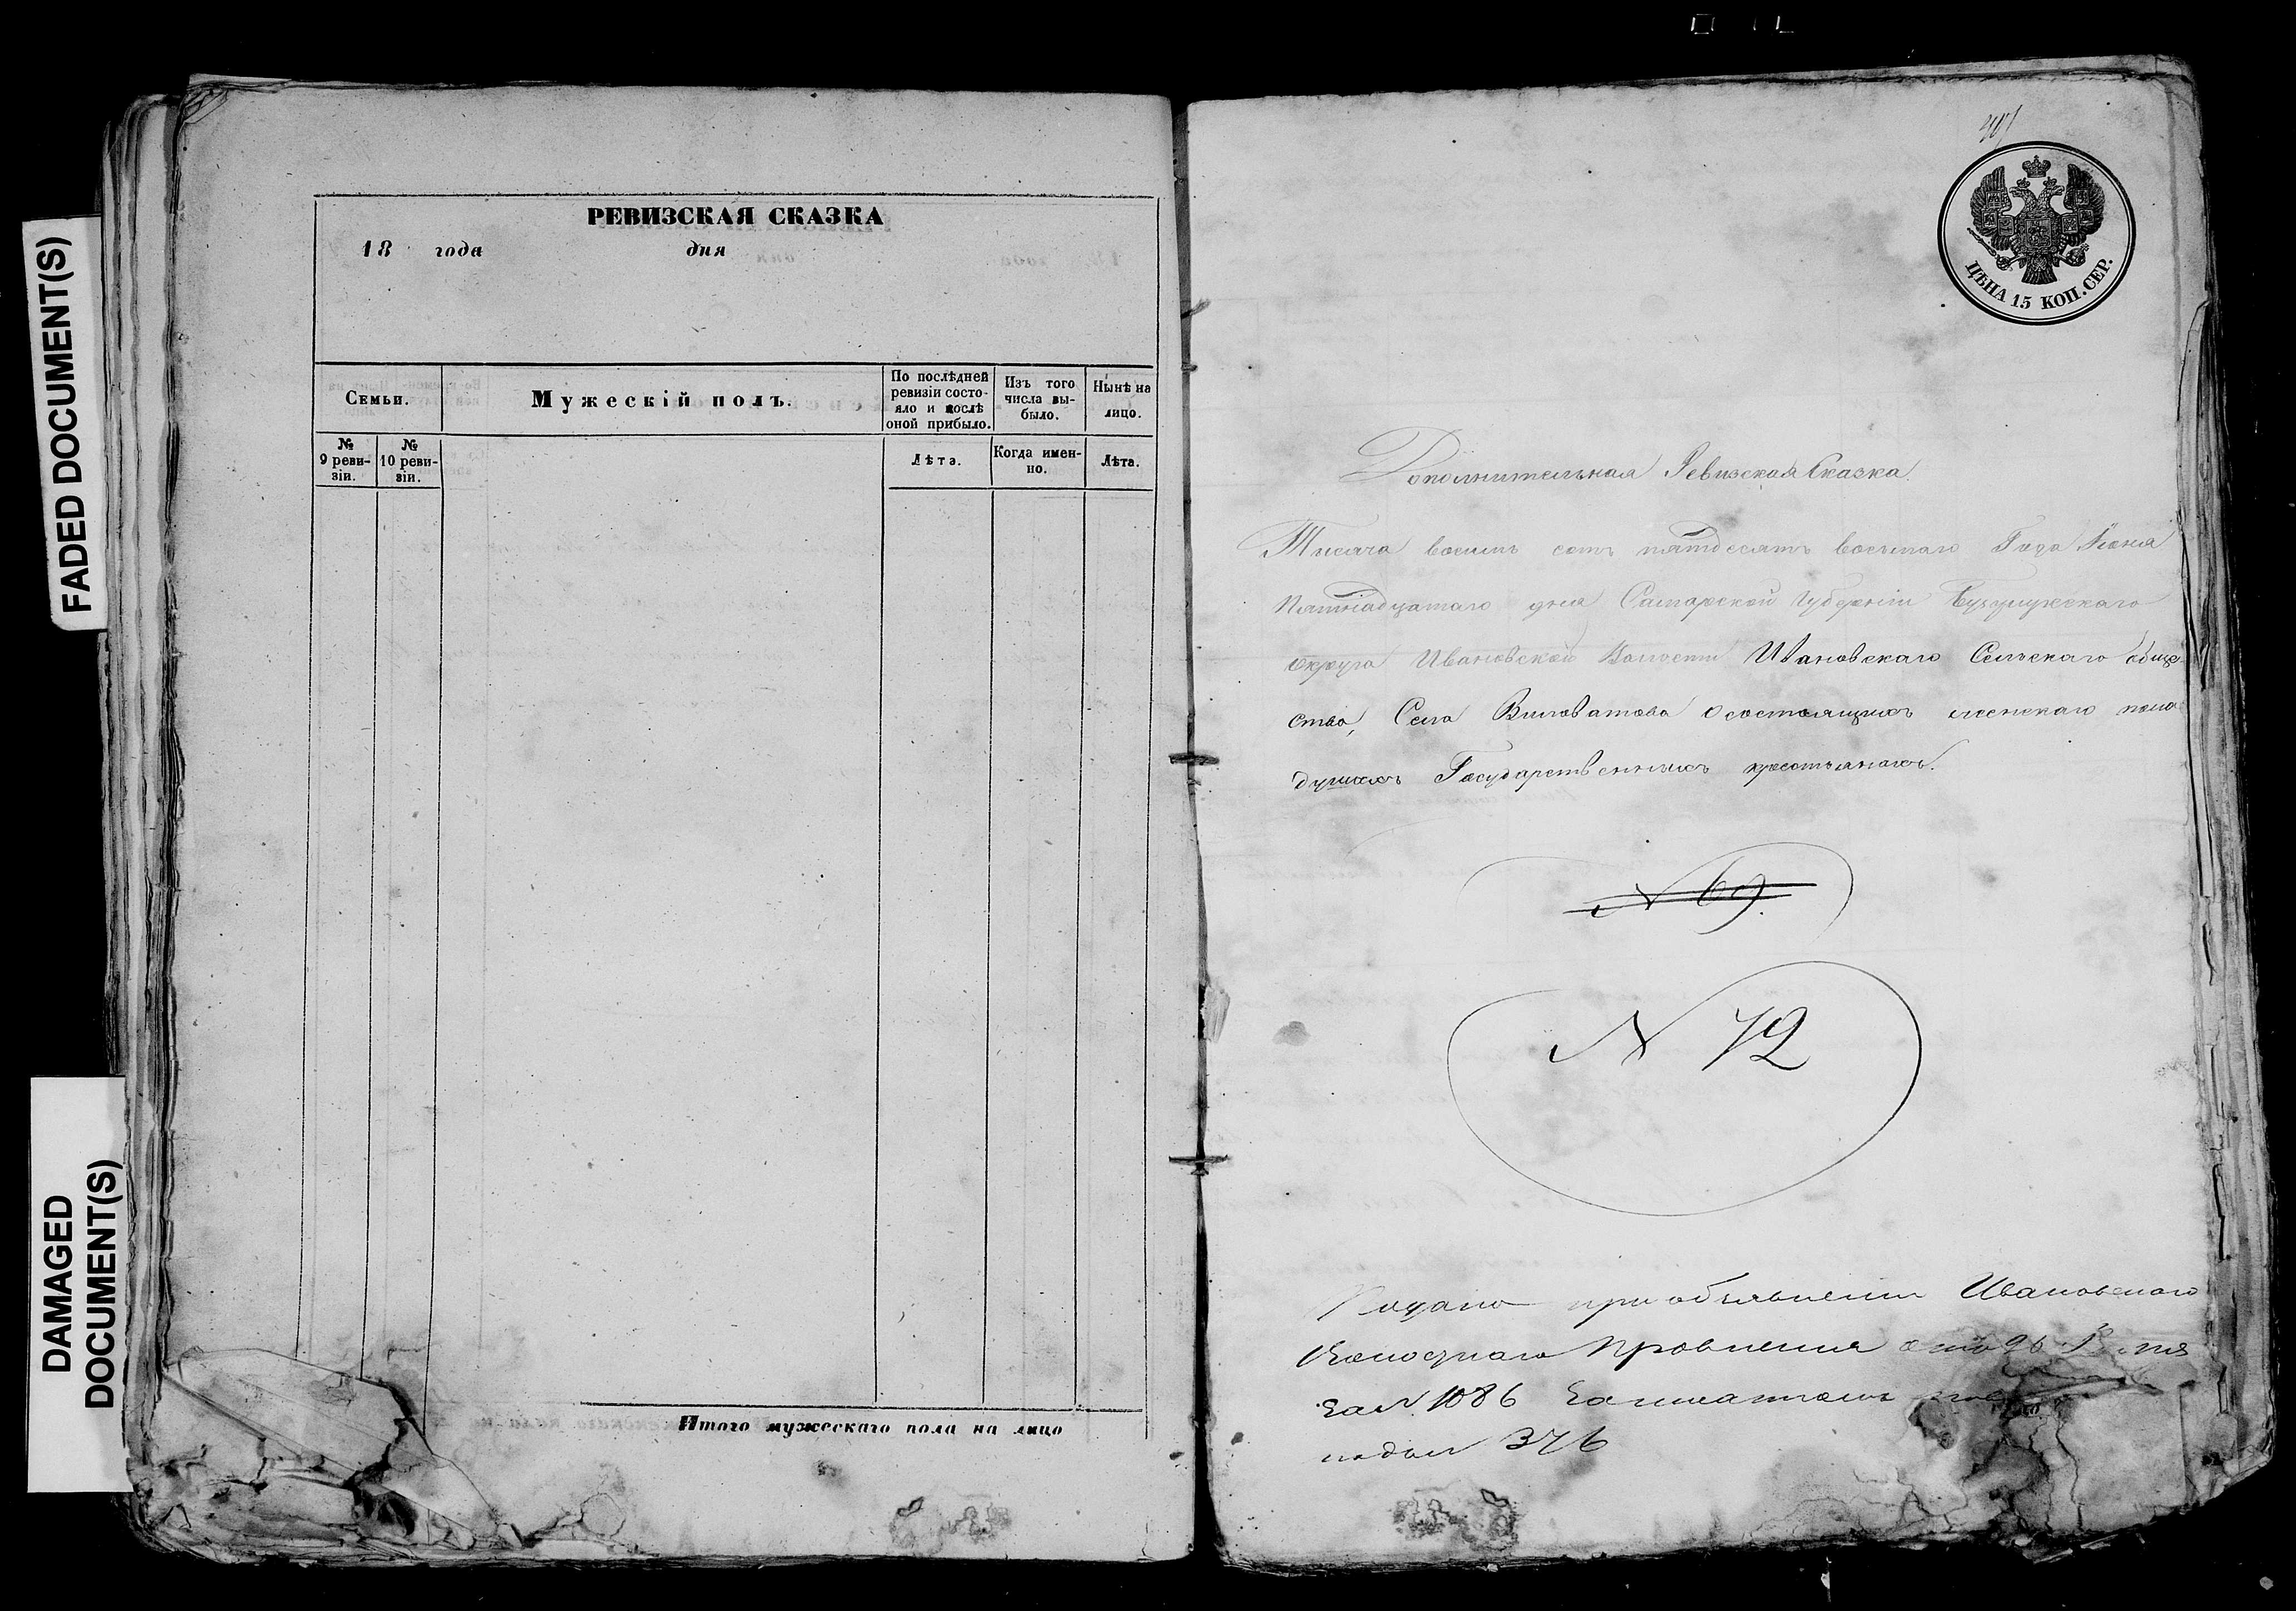 FADED DOCUMENT(S)
DAMAGED
DOCUMENT(S)
РЕВИЗСКАЯ СКАЗКА
18 года дня
Семьи.
Мужескій полъ.
По послѣдней
ревизіи состо-
яло и послѣ
оной прибыло.
Изъ того
числа вы-
было.
Нынѣ на
лицо.
№
9 реви-
зіи.
№
10 реви-
зіи.
Лѣта.
Когда имен-
но.
Лѣта.
Итого мужескаго пола на лицо
ЦѢНА 15 КОП. СЕР.
Дополнительная Ревизская Сказка.
Тысяча восемь сотъ пятдесятъ восьмаго Года Іюня
Пятнадцатаго дня Самарской Губерніи Бузулукскаго
Округа Ивановской Волости Ивановскаго Сельскаго обще-
ства, Села Виловатова о состоящихъ женскаго пола
душахъ Государственныхъ крестьянахъ.
N 69.
N 72
Подано при объявленіи Ивановскаго
Волостнаго Правленія
за N 1086
подъ N 376